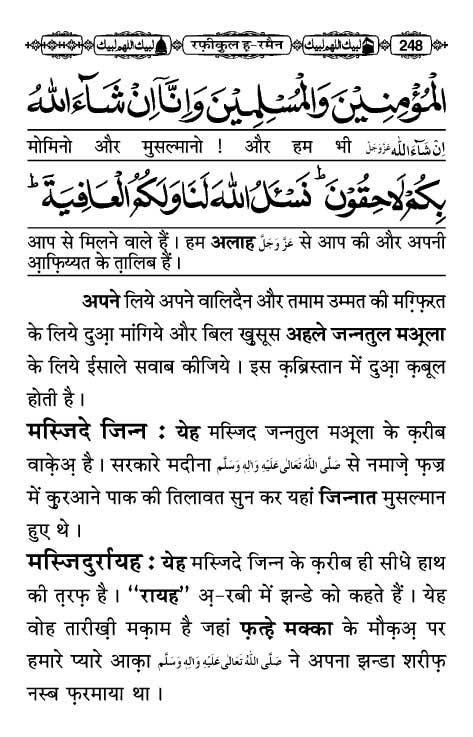 لبیك اللهم لبیك रफ़ीकुल ह-रमैन لبیك اللهم لبیك 248
الْمُؤْمِنِيْنَ وَالْمُسْلِمِيْنَ وَاِنَّآ اِنْ شَآءَ اللهُ
मोमिनो और मुसल्मानो ! और हम भी اِنْ شَآءَ الله عَزَّوَجَلَّ
بِكُمْ لَاحِقُوْنَ ؕ نَسْئَلُ اللهَ لَنَا وَلَكُمُ الْعَافِيَةَ ؕ
आप से मिलने वाले हैं । हम अलाह عَزَّوَجَلَّ से आप की और अपनी
आ़फ़िय्यत के त़ालिब हैं ।
अपने लिये अपने वालिदैन और तमाम उम्मत की मग़्फ़िरत
के लिये दुआ़ मांगिये और बिल खुसूस अहले जन्नतुल मअ़्ला
के लिये ईसाले सवाब कीजिये । इस क़ब्रिस्तान में दुआ़ क़बूल
होती है ।
मस्जिदे जिन्न : येह मस्जिद जन्नतुल मअ़्ला के क़रीब
वाके़अ़ है । सरकारे मदीना صَلَّى اللهُ تَعَالٰى عَلَيْهِ وَاٰلِهٖ وَسَلَّم से नमाज़े फ़ज्र
में क़ुरआने पाक की तिलावत सुन कर यहां जिन्नात मुसल्मान
हुए थे ।
मस्जिदुर्रायह : येह मस्जिदे जिन्न के क़रीब ही सीधे हाथ
की त़रफ़ है । “रायह” अ़-रबी में झन्डे को कहते हैं । येह
वोह तारीख़ी मक़ाम है जहां फ़त्ह़े मक्का के मौक़अ़ पर
हमारे प्यारे आक़ा صَلَّى اللهُ تَعَالٰى عَلَيْهِ وَاٰلِهٖ وَسَلَّم ने अपना झन्डा शरीफ़
नस्ब फ़रमाया था ।